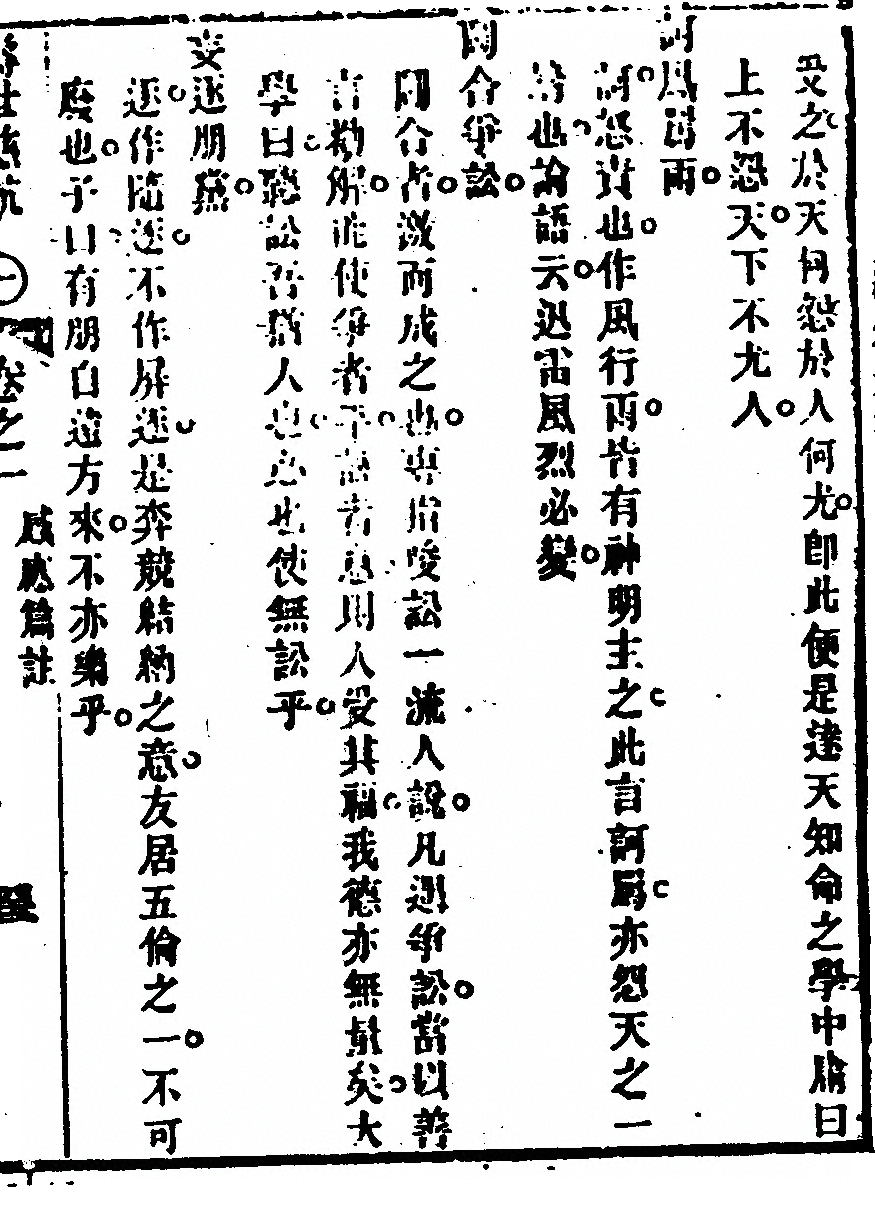 受之於天何怨於人何尤卽此便是達天知命之學中庸曰
上不怨天下不尤人
訶風詈雨
訶怒責也作風行雨皆有神明主之此言訶詈亦怨天之一
端也論語云迅雷風烈必變
鬬合爭訟
鬬合者激而成之也專指唆訟一流人說凡遇爭訟當以善
言勸解能使爭者平訟者息則人受其福我德亦無量矣大
學曰聽訟吾猶人也必也使無訟乎
妄逐朋黨
逐作隨逐不作屏逐是奔競結納之意友居五倫之一不可
廢也子曰有朋自遠方來不亦樂乎
卷之一
感應篇註